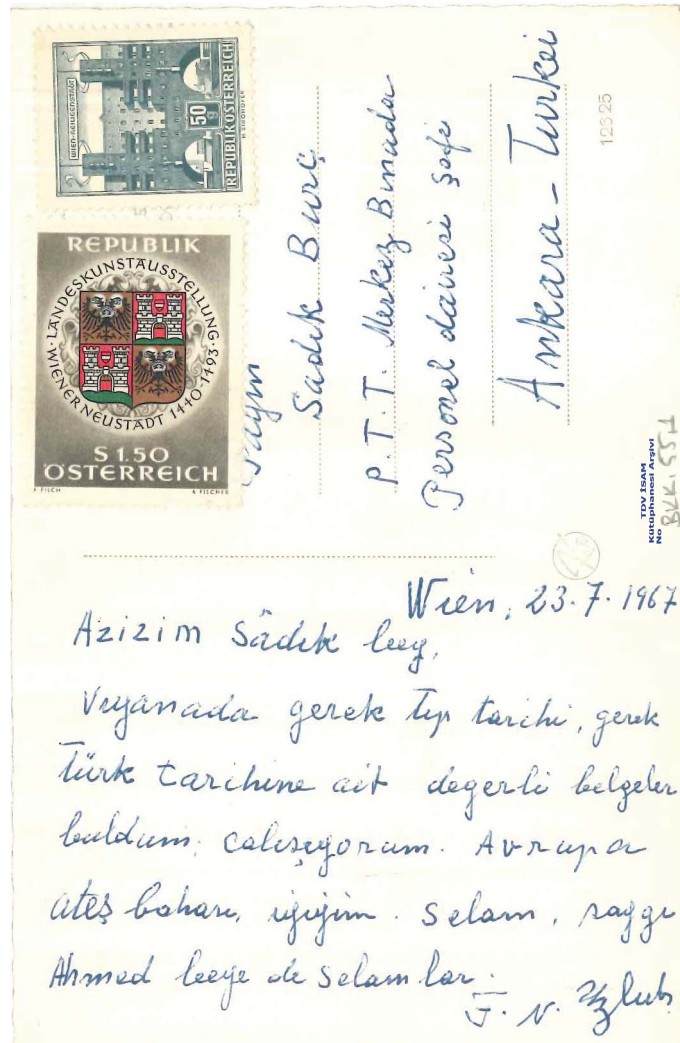 WIEN-HEILIGENSTADT
50 g
REPUBLIK ÖSTERREICH
REPUBLIK
LANDESKUNSTAUSSTELLUNG
WIENER NEUSTADT 1440-1493
S 1.50
ÖSTERREICH
A. FISCHER
Sayın
Sadık Burç
P.T.T. Merkez Binada
Personel dairesi şefi
Ankara - Turkei
12325
TDV İSAM
Kütüphanesi Arşivi
No
Wien, 23.7.1967
Azizim Sâdık beğ,
Viyanada gerek tıp tarihi, gerek
Türk tarihine ait degerli belgeler
buldum. calışıyorum. Avrupa
ateş bahası, iyiyim. Selam, saygı
Ahmed beğe de selamlar.
F. N. Uzluk